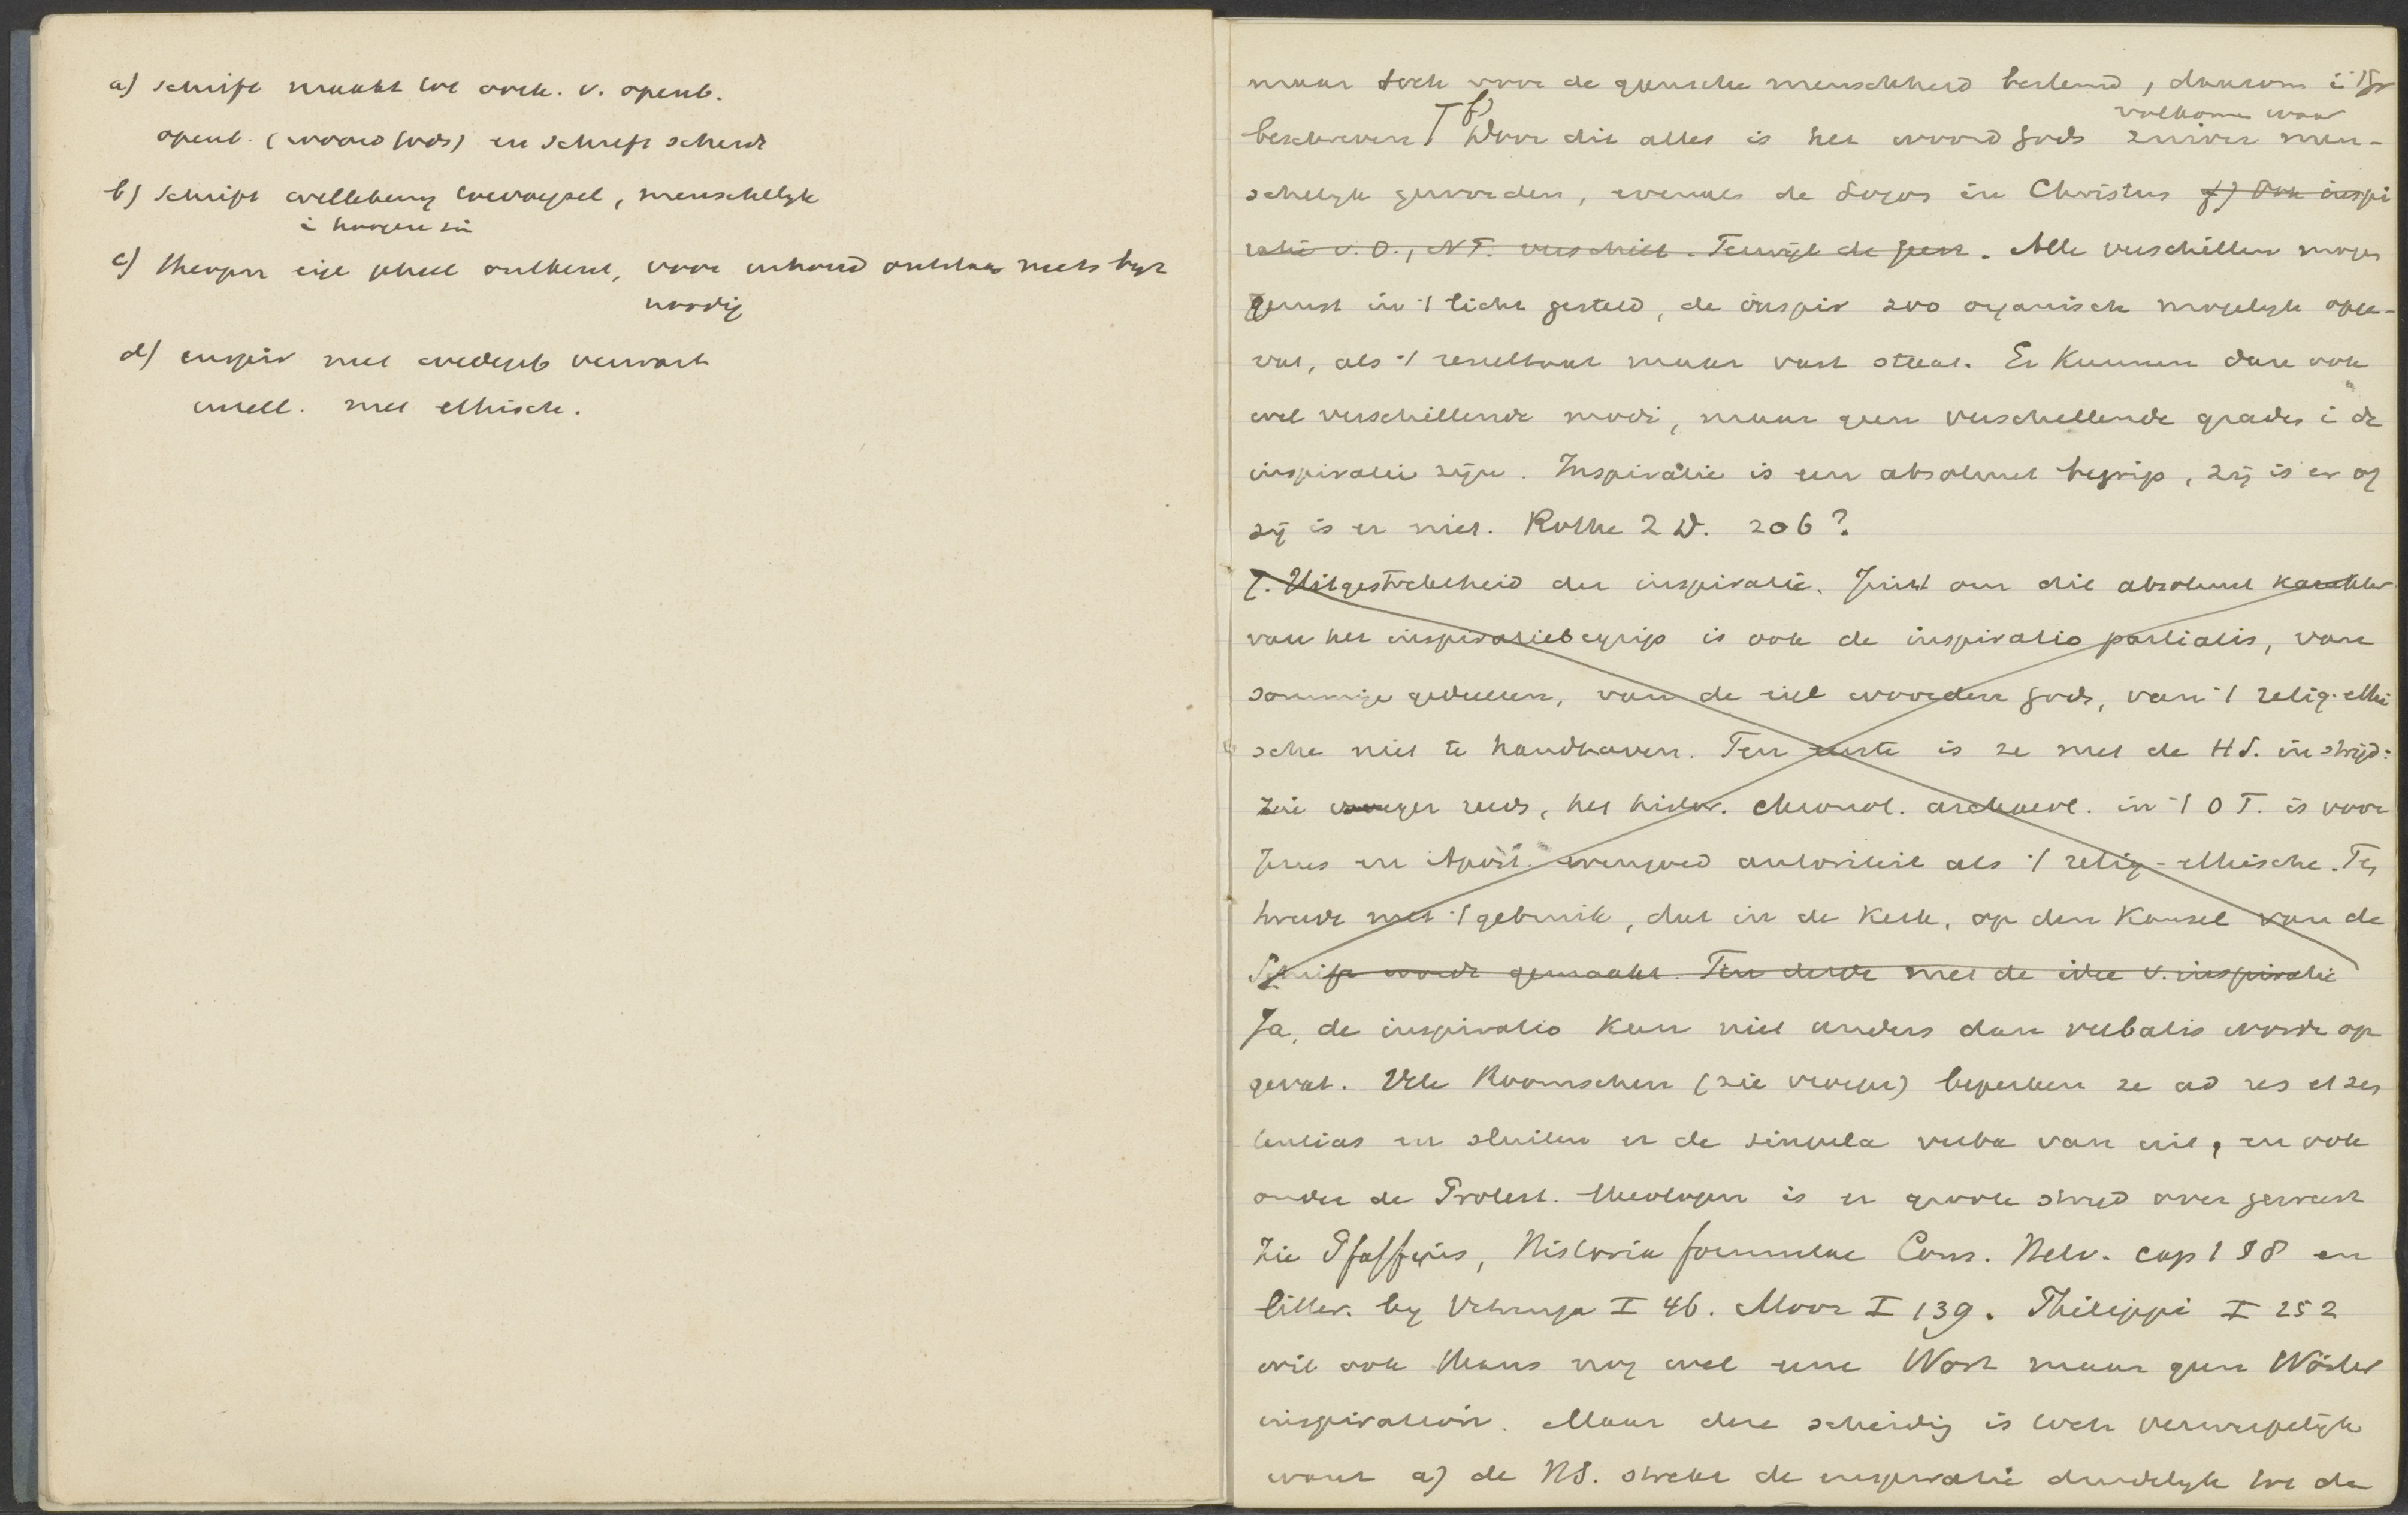 a) schrift maakt tot oork. v. openb.
openb. (woord Gods) en schrift scheidt
b) Schrift willekeurig toevoegsel, menschelijk
i hoogere zin
c) theopn eigl geheel ontkent, voor inhoud ontstaan niets bijz
noodig
d) inspir met wedergeb verwart
intell. met ethisch.
maar toch voor de gansche menschheid bestemd, daarom i
volkomen waar
beschreven f) Door dit alles is het woord Gods zuiver men-
schelijk geworden, evenals de Logos in Christus g) Ook inspi
ratie v. O., N T. verschilt. Terwijl de geest. Alle verschillen mogen
gerust in 't licht gesteld, de inspir zoo organisch mogelijk opge-
vat, als 't resultaat maar vast staat. Er kunnen dan ook
wel verschillende modi, maar geen verschillende graden i de
inspiratie zijn. Inspiratie is een absoluut begrip, zij is er of
zij is er niet. Rothe Z D. 206?
7. Uitgestrektheid der inspiratie. Juist om dit absoluut karakter
van het inspiratiebegrip is ook de inspiratio partialis, van
sommige gedeelten, van de eigl woorden Gods, van 't relig. ethi
sche niet te handhaven. Ten eerste is ze met de H S. in strijd:
zie vroeger reeds, het histor. chronol. archaeol. in 't O T. is voor
Jezus en Apost. evengoed autoriteit als 't relig-ethische. Ten
tweede met 't gebruik, dat in de kerk, op den kansel van de
Schrift wordt gemaakt. Ten derde met de idee v. inspiratie
Ja, de inspiratio kan niet anders dan verbalis worde op
gevat. Vele Roomschen (zie vroeger) beperken ze ad res et sen
tentias en sluiten er de singula verba van uit, en ook
onder de Protest. theologen is er groote strijd over geweest
Zie Pfaffius, Historia formulae Cons. Helv. cap 1 § 8 en
litter. bij Vitringa I 46. Moor I 139. Philippi I 252
wil ook thans nog wel eene Wort maar geen Wörter
inspiration. Maar deze scheidig is toch verwerpelijk
want a) de H S. strekt de inspiratie duidelijk tot de